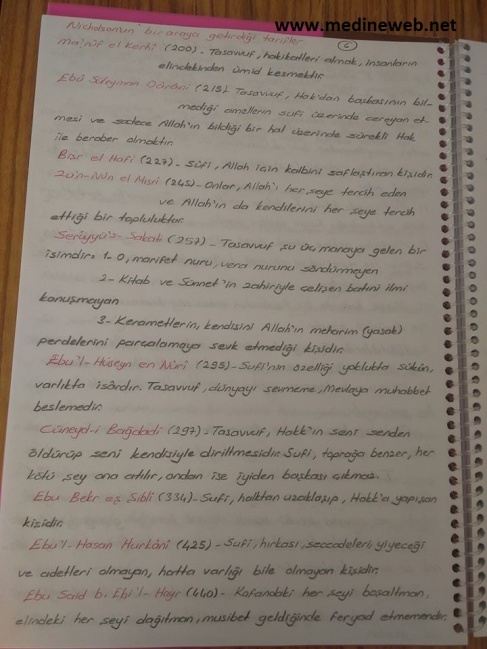 www.medineweb.net
Nicholson'un bir araya getirdiği tarifler
6
Ma'rûf el Kerhî (200) - Tasavvuf, hakikatleri almak, insanların
elindekinden ümid kesmektir.
Ebû Süleyman Dârânî (215) Tasavvuf, Hak'dan başkasının bil-
mediği amellerin sufi üzerinde cereyan et-
mesi ve sadece Allah'ın bildiği bir hal üzerinde sürekli Hak
ile beraber olmaktır.
Bişr el Hafî (227) - Sûfi, Allah için kalbini saflaştıran kişidir.
Zü'n-Nûn el Mısrî (245) - Onlar, Allah'ı her şeye tercih eden
ve Allah'ın da kendilerini her şeye tercih
ettiği bir topluluktur.
Seriyyü's-Sakatî (257) - Tasavvuf şu üç manaya gelen bir
isimdir: 1- O, marifet nuru, vera nurunu söndürmeyen
2- Kitab ve Sünnet'in zahiriyle çelişen batıni ilmi
konuşmayan
3- Kerametlerin, kendisini Allah'ın meharim (yasak)
perdelerini parçalamaya sevk etmediği kişidir.
Ebu'l-Hüseyn en Nûrî (295) - Sufi'nin özelliği yoklukta sükûn,
varlıkta isârdır. Tasavvuf, dünyayı sevmeme, Mevlaya muhabbet
beslemedir.
Cüneyd-i Bağdadi (297) - Tasavvuf, Hakk'ın seni senden
öldürüp seni kendisiyle diriltmesidir. Sufi, toprağa benzer, her
kötü şey ona atılır, ondan ise iyiden başkası çıkmaz.
Ebu Bekr eş Şibli (334) - Sufi, halktan uzaklaşıp, Hakk'a yapışan
kişidir.
Ebu'l-Hasan Hurkânî (425) - Sufi, hırkası, seccadeleri, yiyeceği
ve adetleri olmayan, hatta varlığı bile olmayan kişidir.
Ebu Said b. Ebi'l-Hayr (440) - Kafandaki her şeyi boşaltman,
elindeki her şeyi dağıtman, musibet geldiğinde feryad etmemendir.